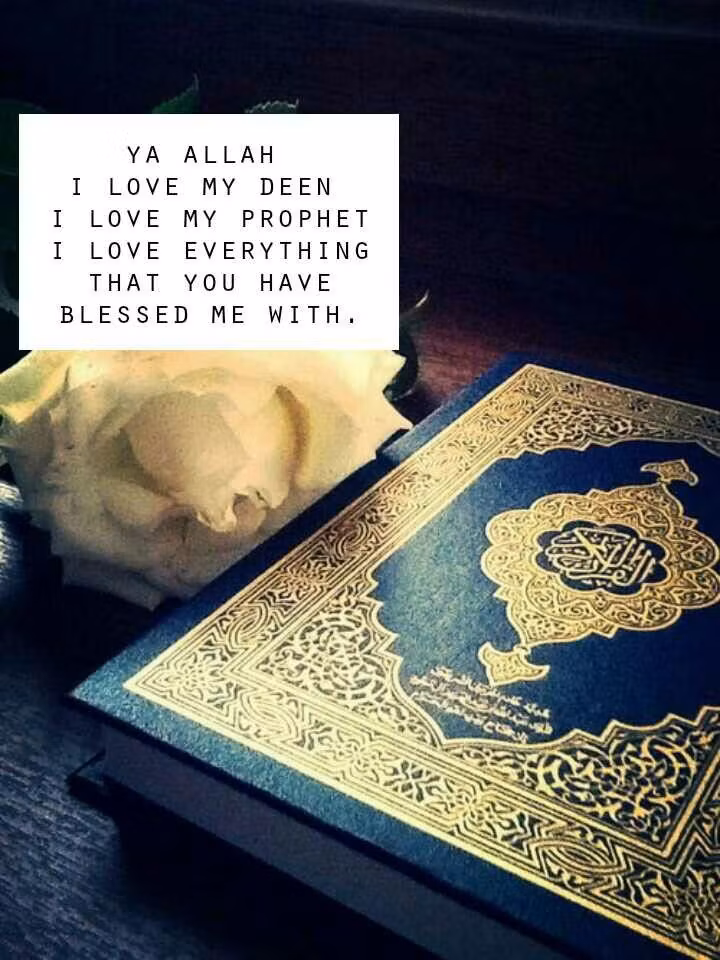 YA ALLAH
I LOVE MY DEEN
I LOVE MY PROPHET
I LOVE EVERYTHING
THAT YOU HAVE
BLESSED ME WITH.
القرآن الكريم